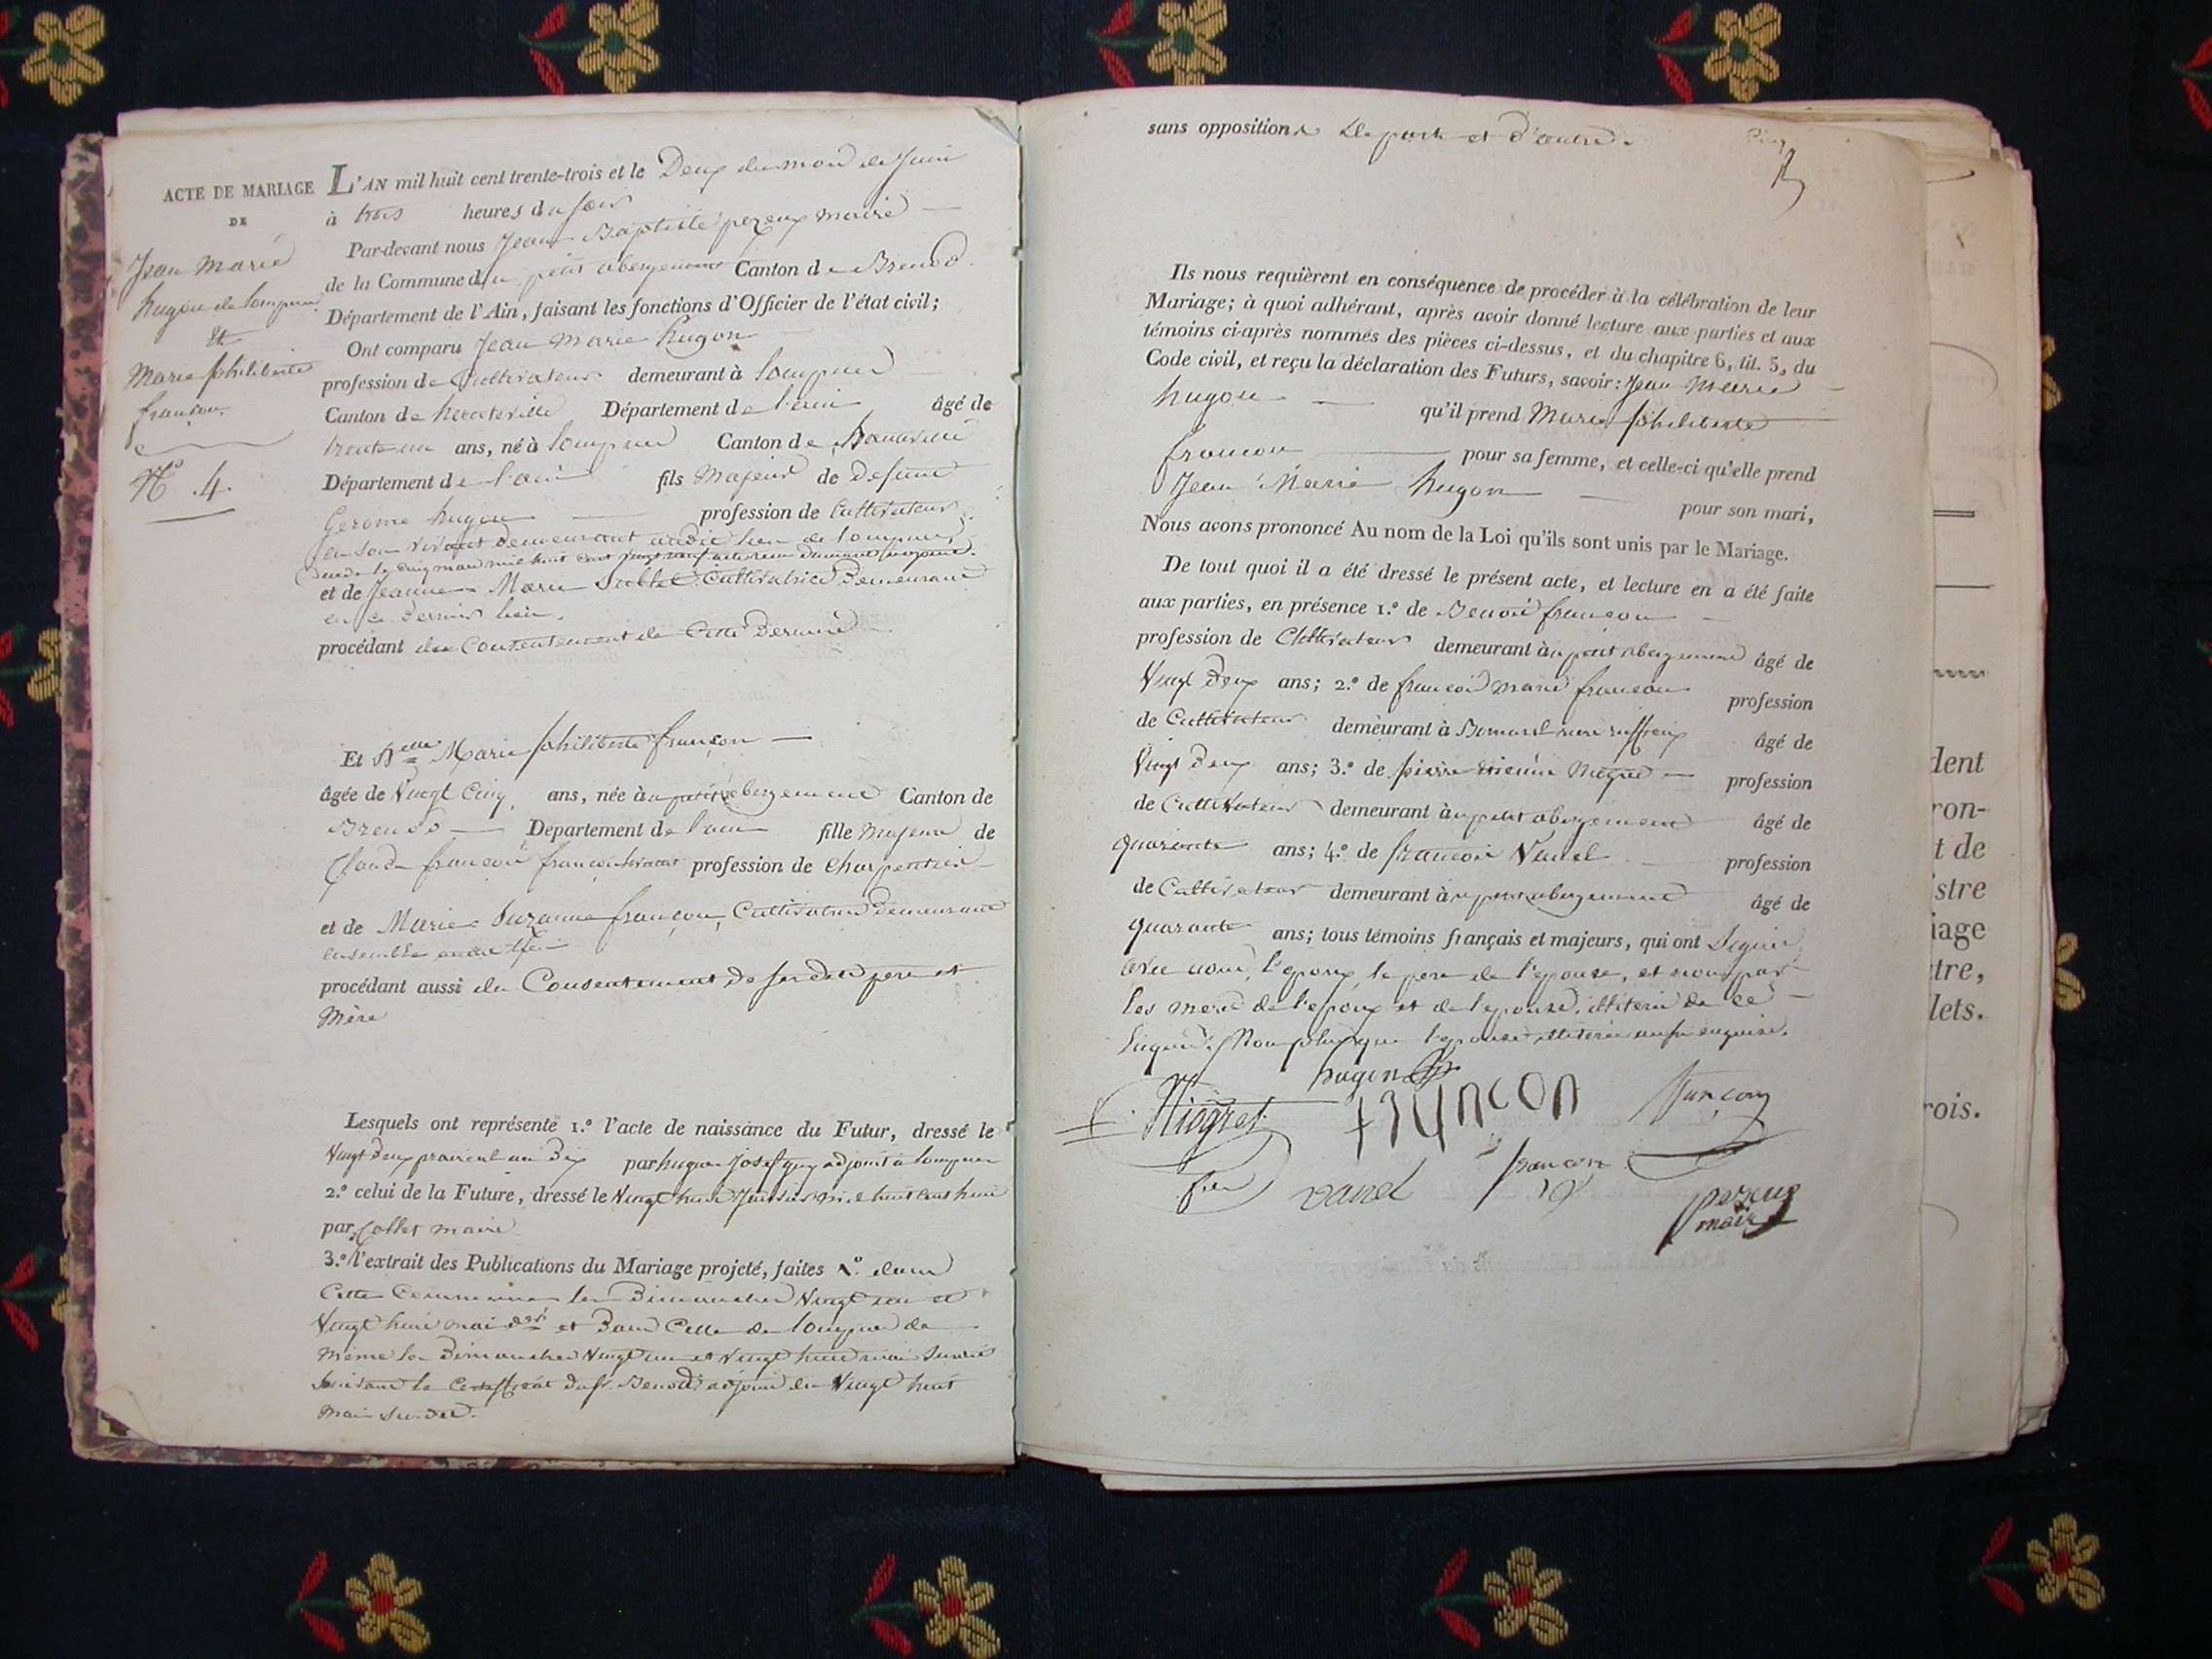 ACTE DE MARIAGE
DE
Jean Marie
hugon de lompnes
Et
Marie philiberte
françon.
N.º 4.
L'AN mil huit cent trente-trois et le Deux du mois de Juin
à trois heures du soir
Par-devant nous Jean Baptiste pezeux maire
de la Commune du petit abergement Canton de Brenod
Département de l'Ain, faisant les fonctions d'Officier de l'état civil;
Ont comparu Jean Marie hugon
profession de Cultivateur demeurant à lompnes
Canton de hauteville Département de l'ain âgé de
trente un ans, né à lompnes Canton de hauteville
Département de l'ain fils Majeur de Defunt
Gerome hugon profession de Cultivateur
en son vivant demeurant audit lieu de lompnes
et de Jeanne Marie Cultivatrice Demeurant
en ce dernier lieu.
procédant du Consentement de Cette Derniere
Et Delle Marie philiberte françon
âgée de Vingt Cinq ans, née au petit abergement Canton de
Brenod Département de l'ain fille Majeure de
Claude françois françon profession de Charpentier
et de Marie Suzanne françon, Cultivatrice Demeurant
ensemble
procédant aussi du Consentement de ses dits père et
Mère
Lesquels ont représenté 1.º l'acte de naissance du Futur, dressé le
Vingt Deux prairial an Dix par hugues Josef adjoint à lompnes
2.º celui de la Future, dressé le Vingt huit Janvier mil huit cent huit
par Collet maire
3.º l'extrait des Publications du Mariage projeté, faites 1.º dans
Cette Commune les Dimanches Vingt un et
Vingt huit mai der et Dans Celle de lompnes de
même les Dimanches Vingt un et Vingt huit mai
suivant le Certificat du sr. Benoit adjoint du Vingt huit
mai susdit.
sans opposition De part et d'autre.
Ils nous requièrent en conséquence de procéder à la célébration de leur
Mariage; à quoi adhérant, après avoir donné lecture aux parties et aux
témoins ci-après nommés des pièces ci-dessus, et du chapitre 6, tit. 5, du
Code civil, et reçu la déclaration des Futurs, savoir: Jean Marie
hugon qu'il prend Marie philiberte
françon pour sa femme, et celle-ci qu'elle prend
Jean Marie hugon pour son mari,
Nous avons prononcé Au nom de la Loi qu'ils sont unis par le Mariage.
De tout quoi il a été dressé le présent acte, et lecture en a été faite
aux parties, en présence 1.º de Benoit françon
profession de Cultivateur demeurant au petit abergement âgé de
Vingt Deux ans; 2.º de françois marie françon profession
de Cultivateur demeurant à âgé de
Vingt Deux ans; 3.º de pierre profession
de Cultivateur demeurant au petit abergement âgé de
quarante ans; 4.º de françois Vanel profession
de Cultivateur demeurant au petit abergement âgé de
quarante ans; tous témoins français et majeurs, qui ont Signé
avec nous, l'epoux, le pere de l'epouse, et non pas
les meres de l'epoux et de l'epouse, de ce
Non plus que l'epouse aussi enquise.
hugon
françon
françon
françon
vanel
pezeux
maire
dent
ron-
t de
istre
iage
tre,
lets.
rois.